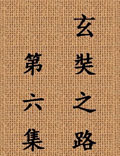 玄奘之路
第六集